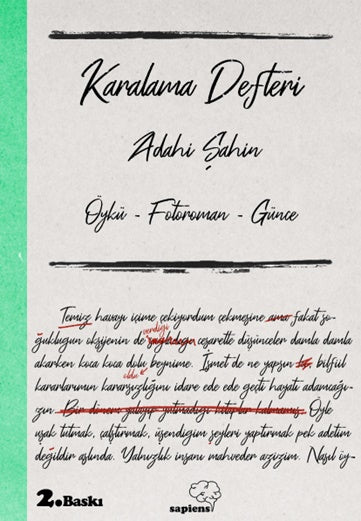 Karalama Defteri
Adahi Şahin
Öykü - Fotoroman - Günce
Temiz havayı içime çekiyordum çekmesine ama fakat so-
verdiği
ğukluğun oksijenin de sağladığı cesaretle düşünceler damla damla
akarken koca koca dolu beynime. İsmet de ne yapsın bilfiil
oldu
kararlarımın kararsızlığını idare ede ede geçti hayatı adamcağı-
zın. Bir dönem kalmamış. Öyle
uşak tutmak, çalıştırmak, üşendiğim şeyleri yaptırmak pek adetim
değildir aslında. Yalnızlık insanı mahveder azizim. Nasıl öy-
2.Baskı
sapiens